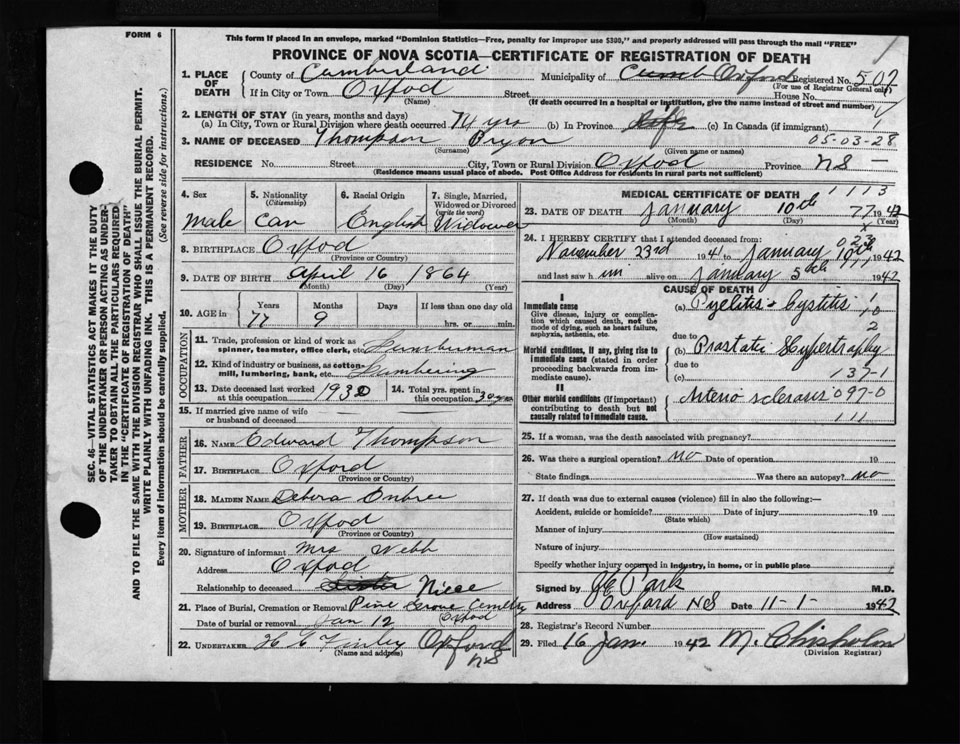 FORM 6
This form if placed in an envelope, marked "Dominion Statistics—Free, penalty for improper use $300," and properly addressed will pass through the mail "FREE"
PROVINCE OF NOVA SCOTIA—CERTIFICATE OF REGISTRATION OF DEATH
1. PLACE OF DEATH
County of Cumberland Municipality of Cumb Oxford Registered No. 507
(For use of Registrar General only)
If in City or Town Oxfod Street House No.
(Name) (If death occurred in a hospital or institution, give the name instead of street and number)
2. LENGTH OF STAY (in years, months and days)
(a) In City, Town or Rural Division where death occurred 74 yrs (b) In Province life (c) In Canada (if immigrant)
05-03-28
3. NAME OF DECEASED Thompson Pryon
(Surname) (Given name or names)
RESIDENCE No. Street City, Town or Rural Division Oxfod Province NS
(Residence means usual place of abode. Post Office Address for residents in rural parts not sufficient)
4. Sex 5. Nationality (Citizenship) 6. Racial Origin 7. Single, Married, Widowed or Divorced (write the word)
male Can English Widower
8. BIRTHPLACE Oxfod
(Province or Country)
9. DATE OF BIRTH April 16 1864
(Month) (Day) (Year)
10. AGE IN Years Months Days If less than one day old
77 9 hrs. or min.
OCCUPATION
11. Trade, profession or kind of work as spinner, teamster, office clerk, etc. Lumberman
12. Kind of industry or business, as cotton-mill, lumbering, bank, etc. Lumbering
13. Date deceased last worked at this occupation 1930 14. Total yrs. spent in this occupation 30 years
15. If married give name of wife or husband of deceased
FATHER
16. NAME Edward Thompson
17. BIRTHPLACE Oxford
(Province or Country)
MOTHER
18. MAIDEN NAME Debora Onbree
19. BIRTHPLACE Oxfod
(Province or Country)
20. Signature of informant Mrs Webb
Address Oxfod
Relationship to deceased Sister Niece
21. Place of Burial, Cremation or Removal Pine Grove Cemetry
Oxfod
Date of burial or removal Jan 12
22. UNDERTAKER Finley Oxford
NS
(Name and address)
MEDICAL CERTIFICATE OF DEATH 1 1 1 3
23. DATE OF DEATH January 10th 77 1942
(Month) (Day) (Year)
24. I HEREBY CERTIFY that I attended deceased from:
November 23rd 1941 to January 10th 1942
and last saw h im alive on January 5th 1942
CAUSE OF DEATH
I
Immediate cause
Give disease, injury or complication which caused death, not the mode of dying, such as heart failure, asphyxia, asthenia, etc.
(a) Pyelitis & Cystitis
due to
Morbid conditions, if any, giving rise to immediate cause (stated in order proceeding backwards from immediate cause).
(b) Prostatic Hypertrophy
due to
(c) 37-1
II
Other morbid conditions (if important) contributing to death but not causally related to immediate cause.
Arterio sclerosis 097-0
111
25. If a woman, was the death associated with pregnancy?
26. Was there a surgical operation? no Date of operation 19
State findings Was there an autopsy? no
27. If death was due to external causes (violence) fill in also the following:—
Accident, suicide or homicide? Date of injury 19
(State which)
Manner of injury
(How sustained)
Nature of injury
Specify whether injury occurred in industry, in home, or in public place
Signed by Park M.D.
Address Oxford NS Date 11-1- 1942
28. Registrar's Record Number
29. Filed 16 Jan 1942 M. Chisholm
(Division Registrar)
SEC. 46—VITAL STATISTICS ACT MAKES IT THE DUTY
OF THE UNDERTAKER OR PERSON ACTING AS UNDER-
TAKER TO OBTAIN ALL THE PARTICULARS REQUIRED
IN THE "CERTIFICATE OF REGISTRATION OF DEATH"
AND TO FILE THE SAME WITH THE DIVISION REGISTRAR WHO SHALL ISSUE THE BURIAL PERMIT.
WRITE PLAINLY WITH UNFADING INK. THIS IS A PERMANENT RECORD.
Every item of information should be carefully supplied. (See reverse side for instructions.)